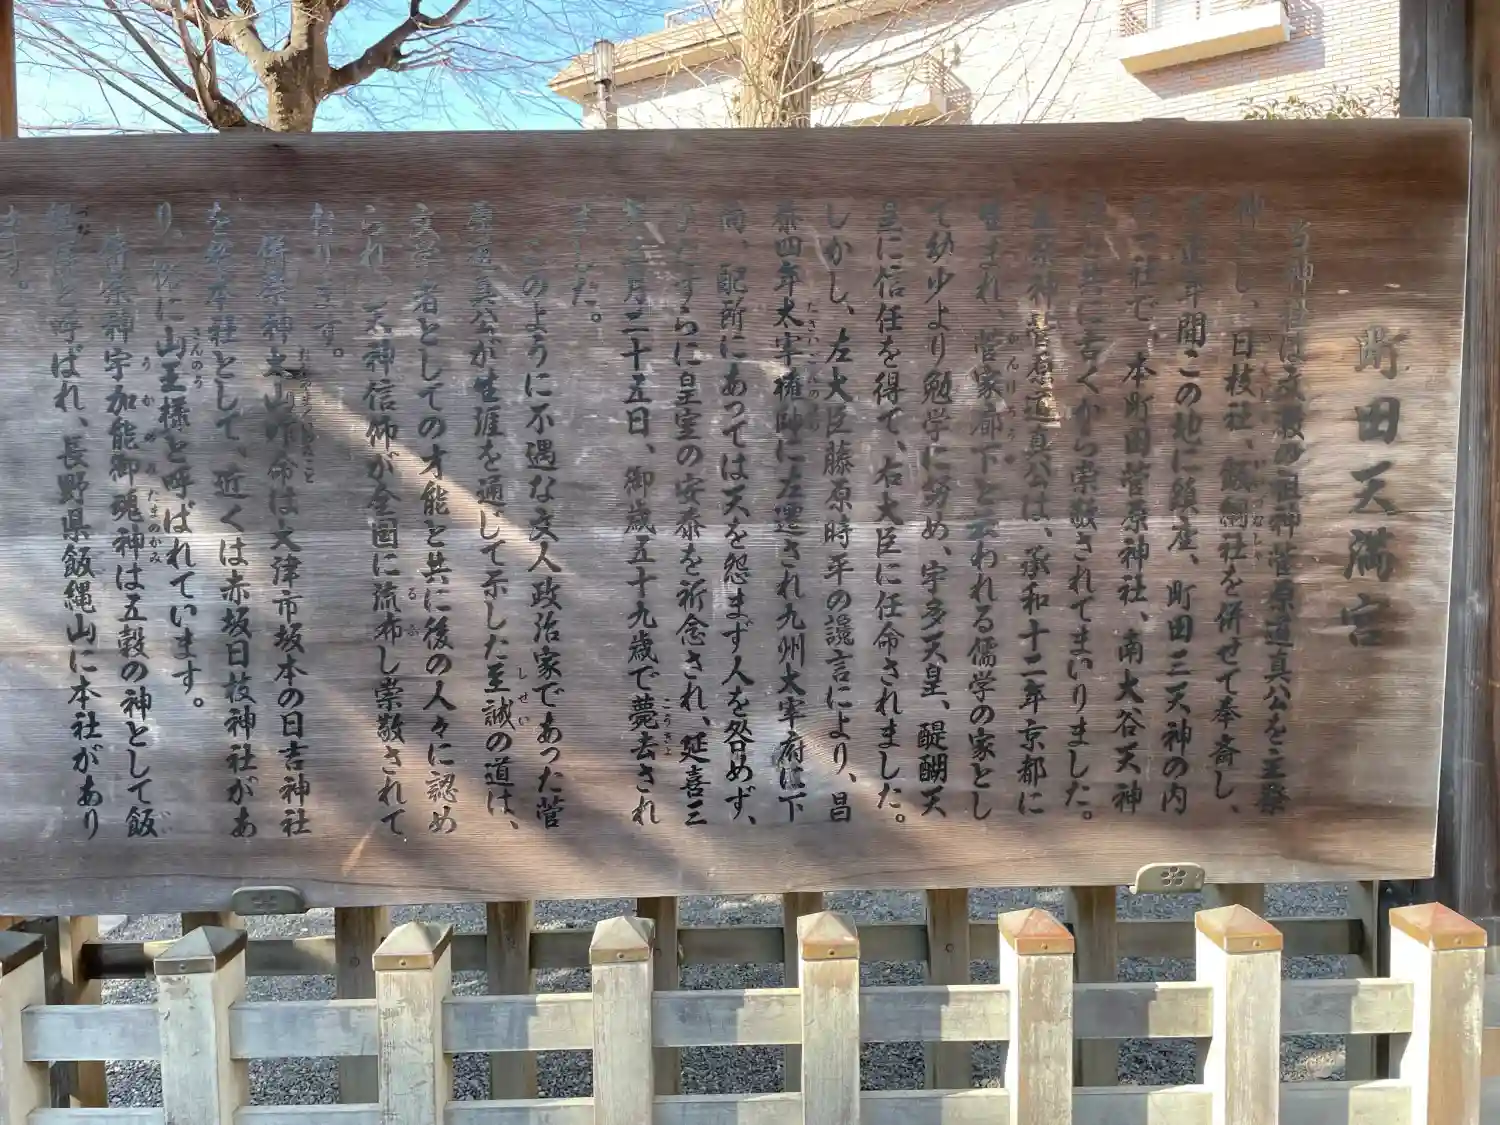 町田天満宮
当神社は文教の祖神菅原道真公を主祭
神とし、日枝社、飯綱社を併せて奉斎し、
正年間この地に鎮座、町田三天神の内
の一社で、本町田菅原神社、南大谷天神
社と共に古くから崇敬されてまいりました。
主祭神菅原道真公は、承和十二年京都に
生まれ、菅家廊下と云われる儒学の家とし
て幼少より勉学に努め、宇多天皇、醍醐天
皇に信任を得て、右大臣に任命されました。
しかし、左大臣藤原時平の讒言により、昌
泰四年太宰権帥に左遷され九州大宰府に下
向、配所にあっては天を怨まず人を咎めず、
ひたすらに皇室の安泰を祈念され、延喜三
年二月二十五日、御歳五十九歳で薨去され
ました。
このように不遇な文人政治家であった菅
原道真公が生涯を通して示した至誠の道は、
文学者としての才能と共に後の人々に認め
られ、天神信仰が全国に流布し崇敬されて
おります。
併祭神大山咋命は大津市坂本の日吉神社
を総本社として、近くは赤坂日枝神社があ
り、俗に山王様と呼ばれています。
併祭神宇加能御魂神は五穀の神として飯
綱様と呼ばれ、長野県飯縄山に本社があり
ます。